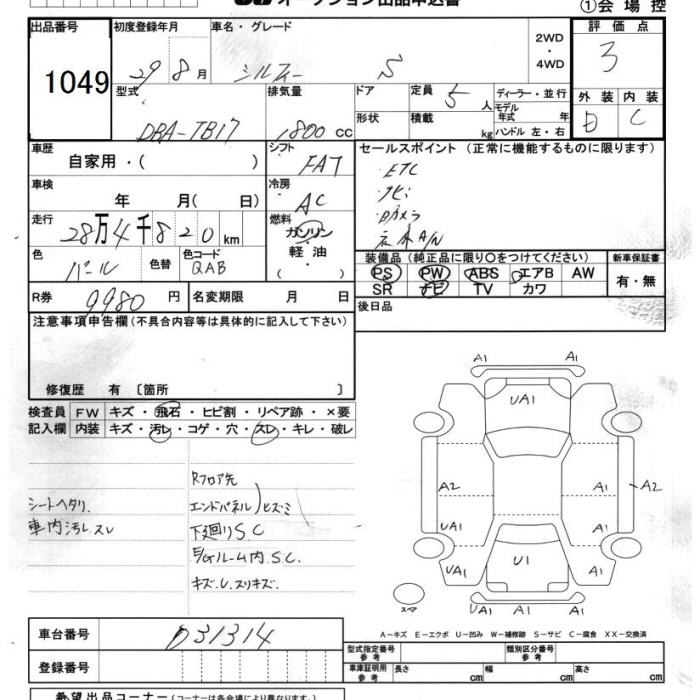 オークション出品申込書
①会場控
出品番号
1049
初度登録年月
29 8 月
車名・グレード
シルフィー S
2WD
・
4WD
評価点
3
型式
DBA-TB17
排気量
1800 cc
ドア
形状
定員
5 人
積載
kg
ディーラー・並行
モデル
年式 年
ハンドル 左・右
外装
内装
C
車歴
自家用・( )
シフト
FAT
セールスポイント (正常に機能するものに限ります)
ETC
ナビ
Bカメラ
車検
年 月( 日)
冷房
AC
走行
28万4千820km
燃料
ガソリン
・
軽油
( )
色
パール
色替
色コード
QAB
装備品 (純正品に限り○をつけてください)
PS PW ABS エアB AW
SR ナビ TV カワ
新車保証書
有・無
R券
9980 円
名変期限 月 日
後日品
注意事項申告欄 (不具合内容等は具体的に記入して下さい)
修復歴 有 〔箇所 〕
検査員
記入欄
FW キズ・飛石・ヒビ割・リペア跡・×要
内装 キズ・汚レ・コゲ・穴・スレ・キレ・破レ
シートヘタリ.
車内汚レスレ
Rフロア先
エンドパネル)ヒズミ
下廻りS.C
E/Gルーム内S.C.
キズ.U.スリキズ.
A1 A1
UA1
A2 A1 A2
UA1 A1
U1
UA1 A1
UA1 A1
スペア
A-キズ E-エクボ U-凹み W-補修跡 S-サビ C-腐食 XX-交換済
車台番号
031314
型式指定番号
参考
類別区分番号
参考
登録番号
車庫証明用
参考
長さ cm
幅 cm
高さ cm
希望出品コーナー